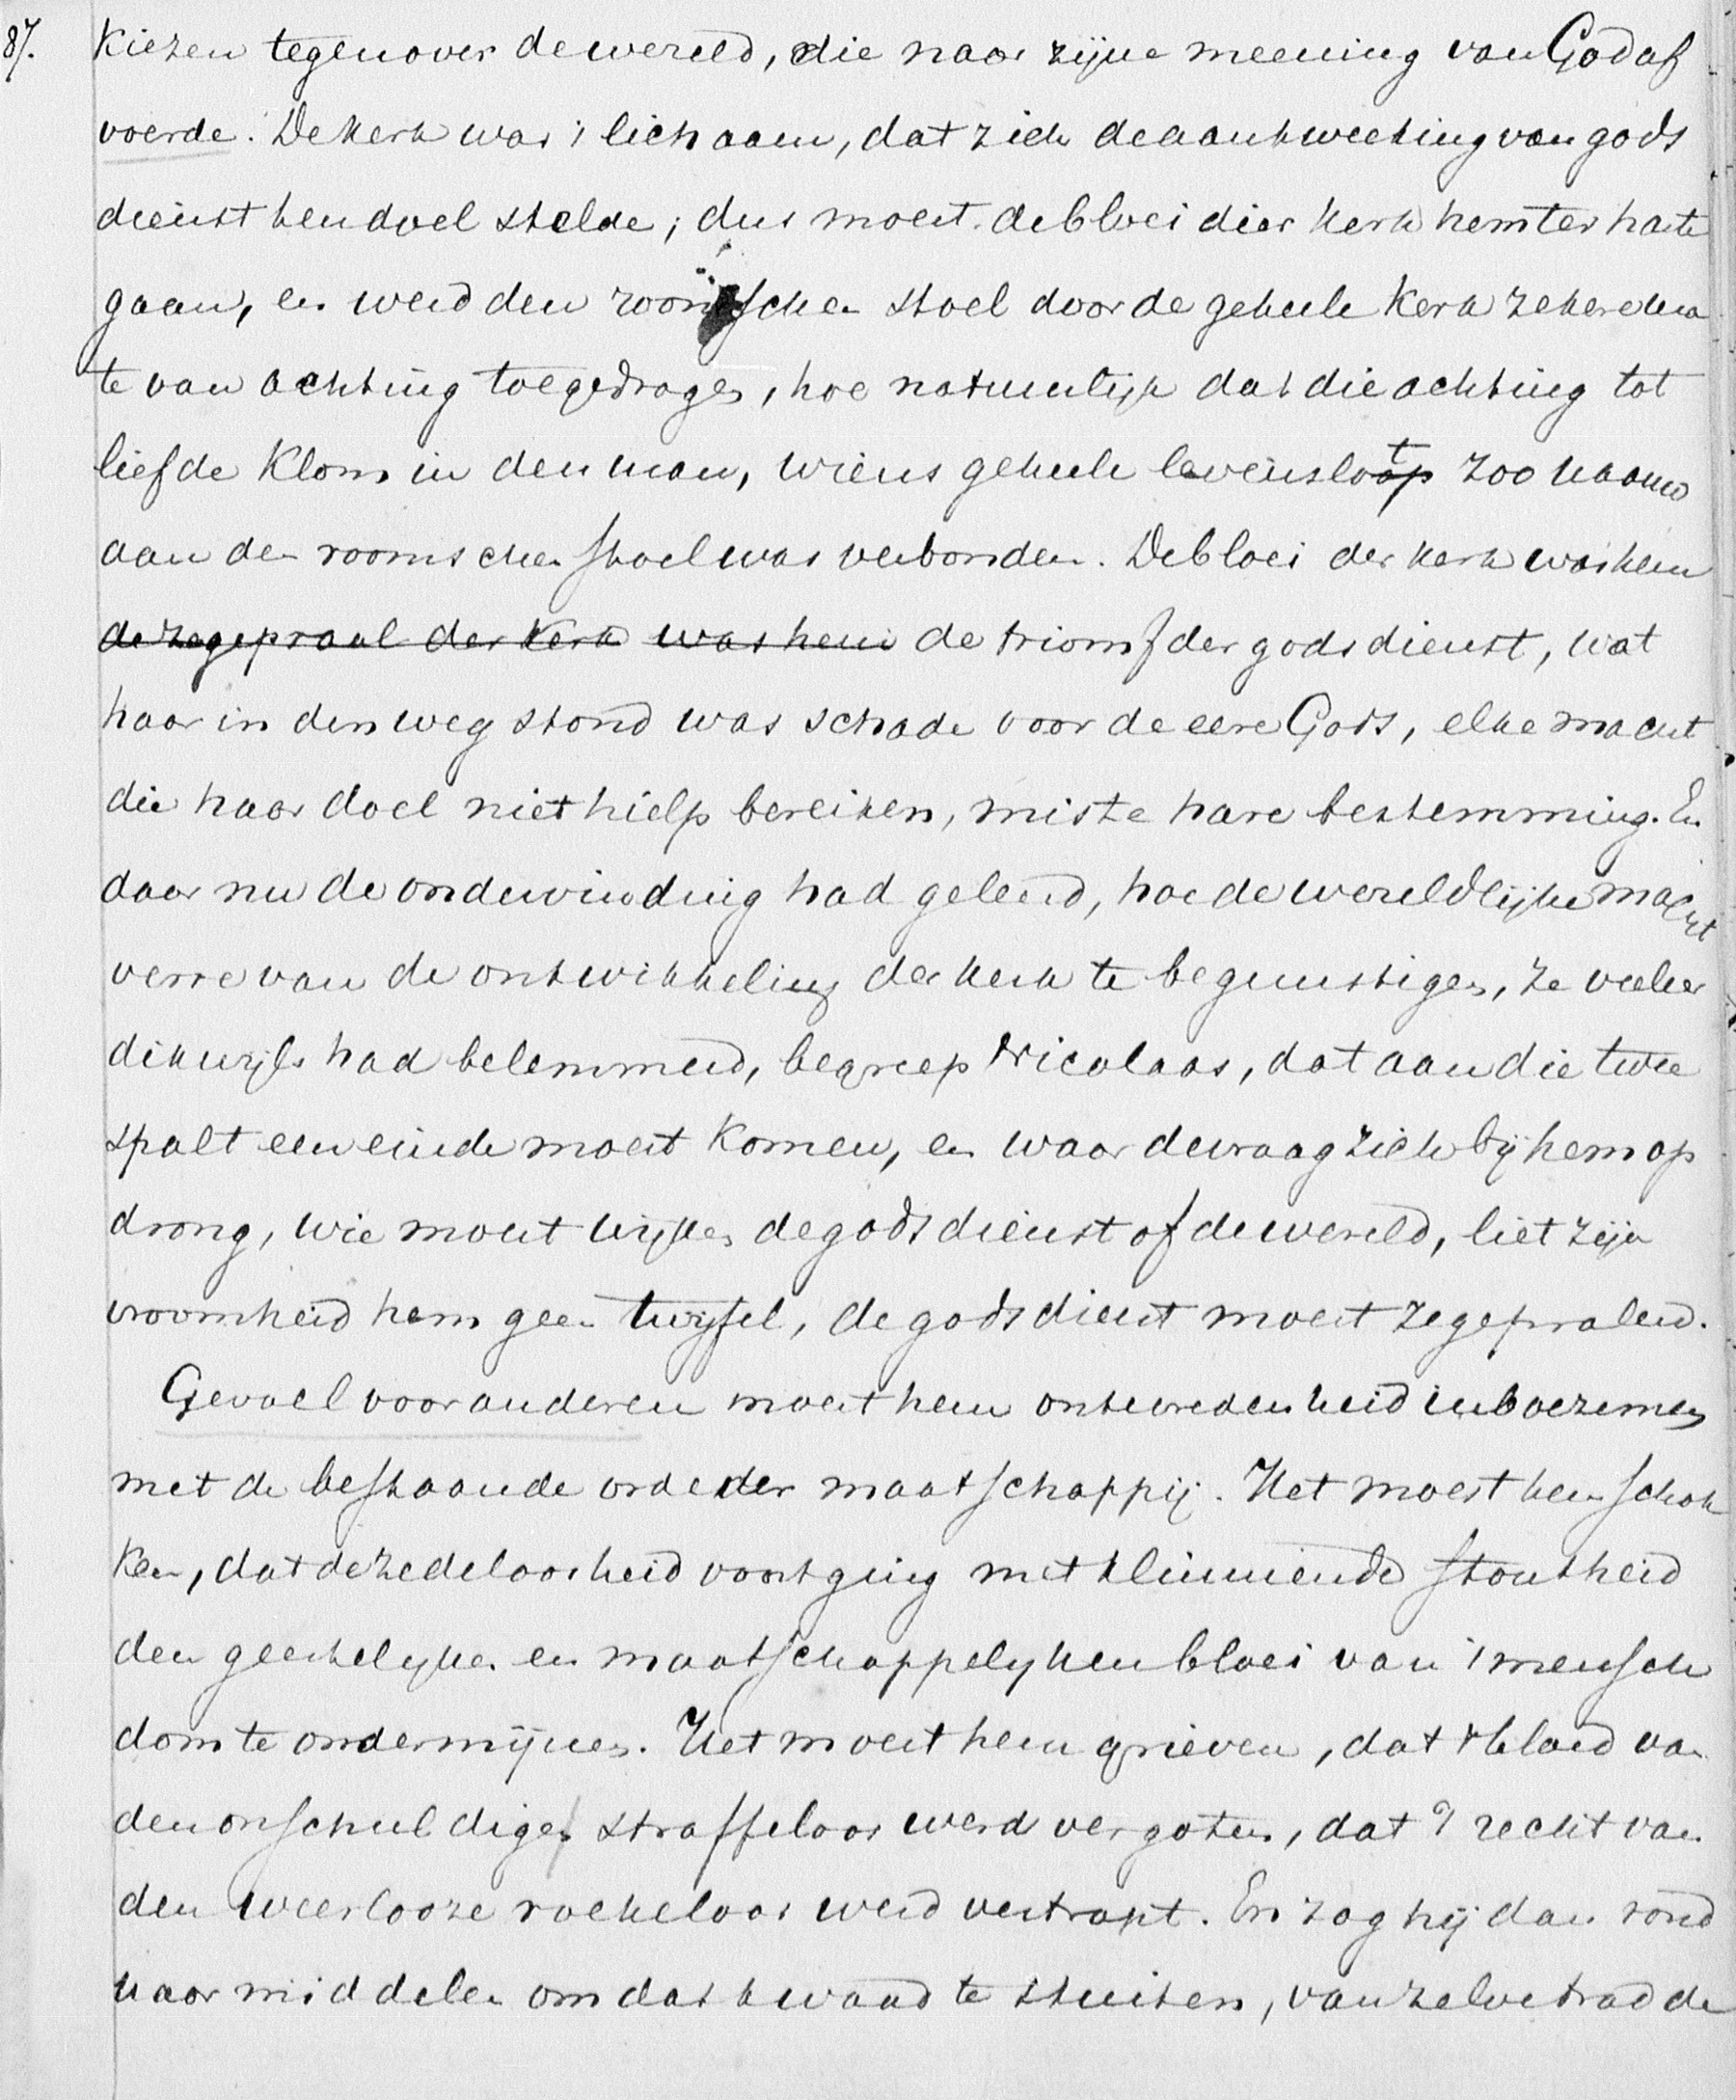 87.
kiezen tegenover de wereld, die naar zijne meening van God af
voerde. De kerk was 't lichaam, dat zich de aankweeking van gods
dienst ten doel stelde; dus moest de bloei dier kerk hem ter harte
gaan, en werd den roomschen stoel door de geheele kerk zekere ma
te van achting toegedragen, hoe natuurlijk dat die achting tot
liefde klom in den man, wiens geheele levenslot zoo naauw
aan den roomschen stoel was verbonden. De bloei der kerk was hem
de zegepraal der kerk was hem de triomf der godsdienst, wat
haar in den weg stond was schade voor de eere Gods, elke macht
die haar doel niet hielp bereiken, miste hare bestemming. En
daar nu de ondervinding had geleerd, hoe de wereldlijke macht
verre van de ontwikkeling der kerk te begunstigen, ze veeleer
dikwijls had belemmerd, begreep Nicolaas, dat aan die twee
spalt een einde moest komen, en waar de vraag zich bij hem op
drong, wie moest wijken de godsdienst of de wereld, liet zijn
vroomheid hem geen twijfel, de godsdienst moest zegepralend.
Gevoel voor anderen moest hem ontevredenheid inboezemen
met de bestaande orde der maatschappij. Het moest hem schok
ken, dat de zedeloosheid voortging met klimmende stoutheid
den geestelijken en maatschappelijken bloei van 't mensch
dom te ondermijnen. Het moest hem grieven, dat 't bloed van
den onschuldige straffeloos werd vergoten, dat 't recht van
den weerlooze roekeloos werd vertrapt. En zag hij dan rond
naar middelen om dat kwaad te stuiten, van zelve trad de